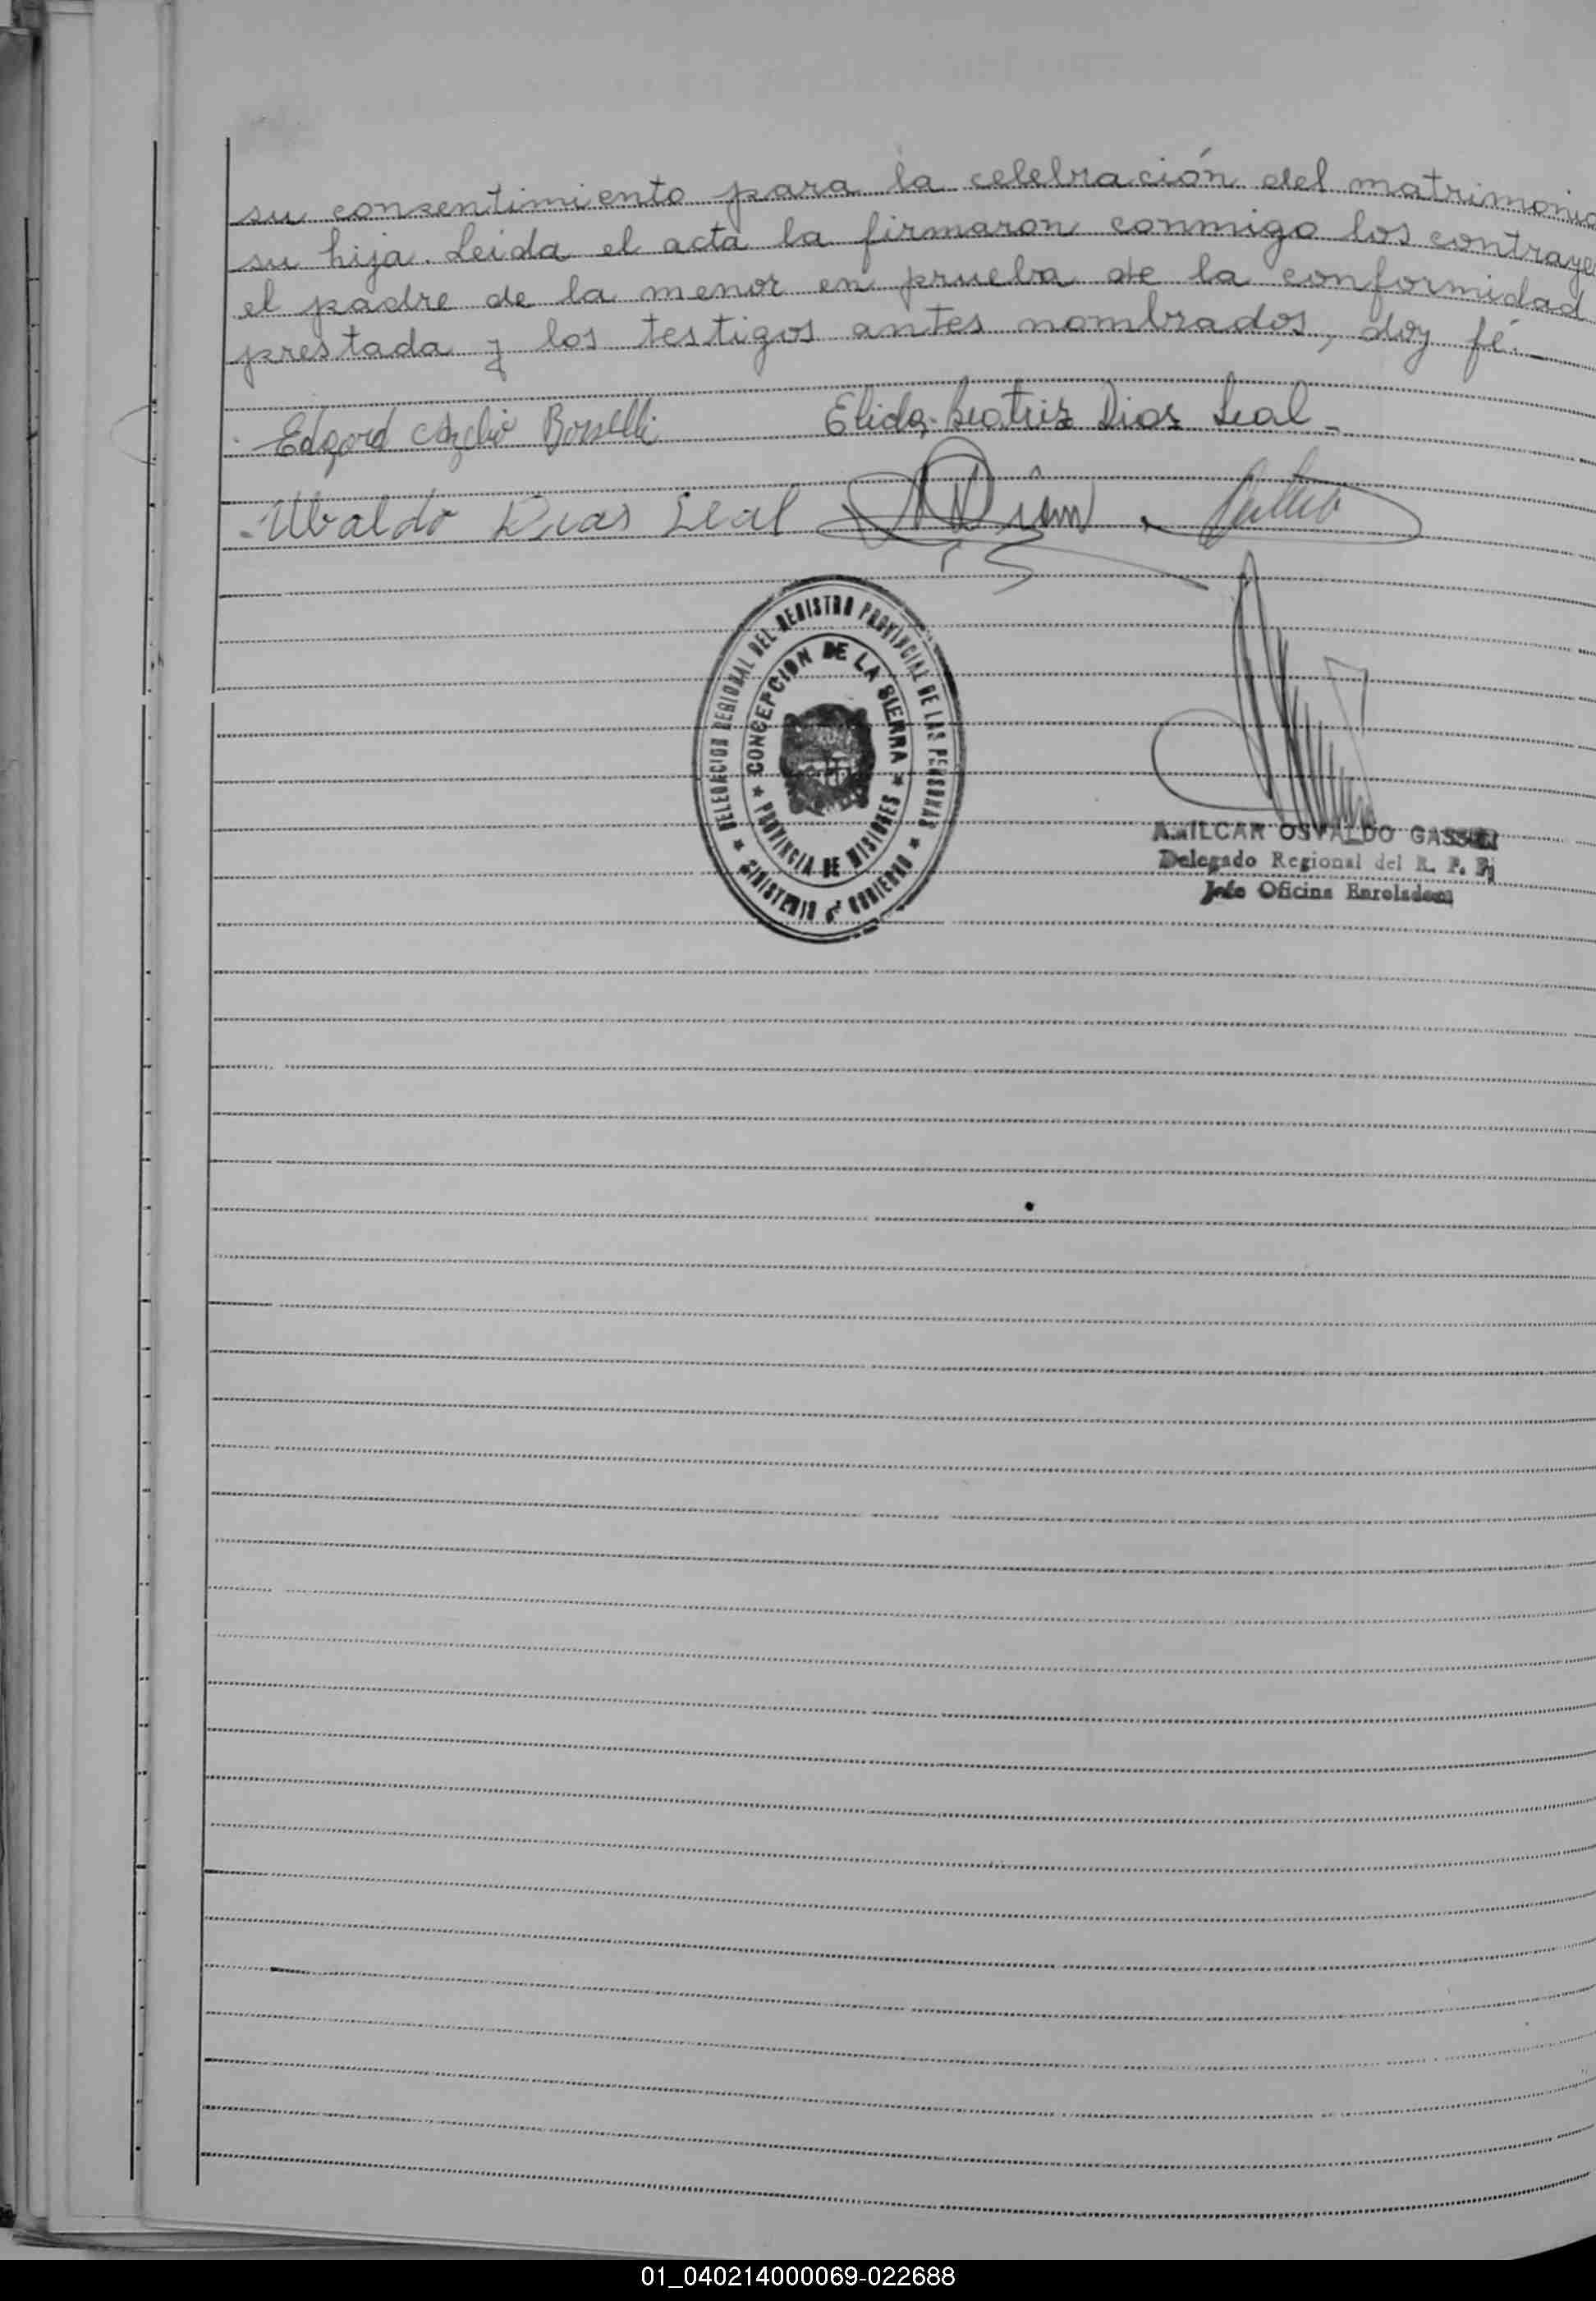 su consentimiento para la celebración del matrimonio
su hija. Leida el acta la firmaron conmigo los contraye
el padre de la menor en prueba de la conformidad
prestada y los testigos antes nombrados, doy fé.
Edgard Bonelli Elida Beatriz Dias Leal
Ubaldo Dias Leal
DELEGACION REGIONAL DEL REGISTRO PROVINCIAL DE LAS PERSONAS
CONCEPCION DE LA SIERRA
PROVINCIA DE MISIONES
MINISTERIO GOBIERNO
AMILCAR OSVALDO
Delegado Regional del R. P. P.
Jefe Oficina Enroladora
01_040214000069-022688